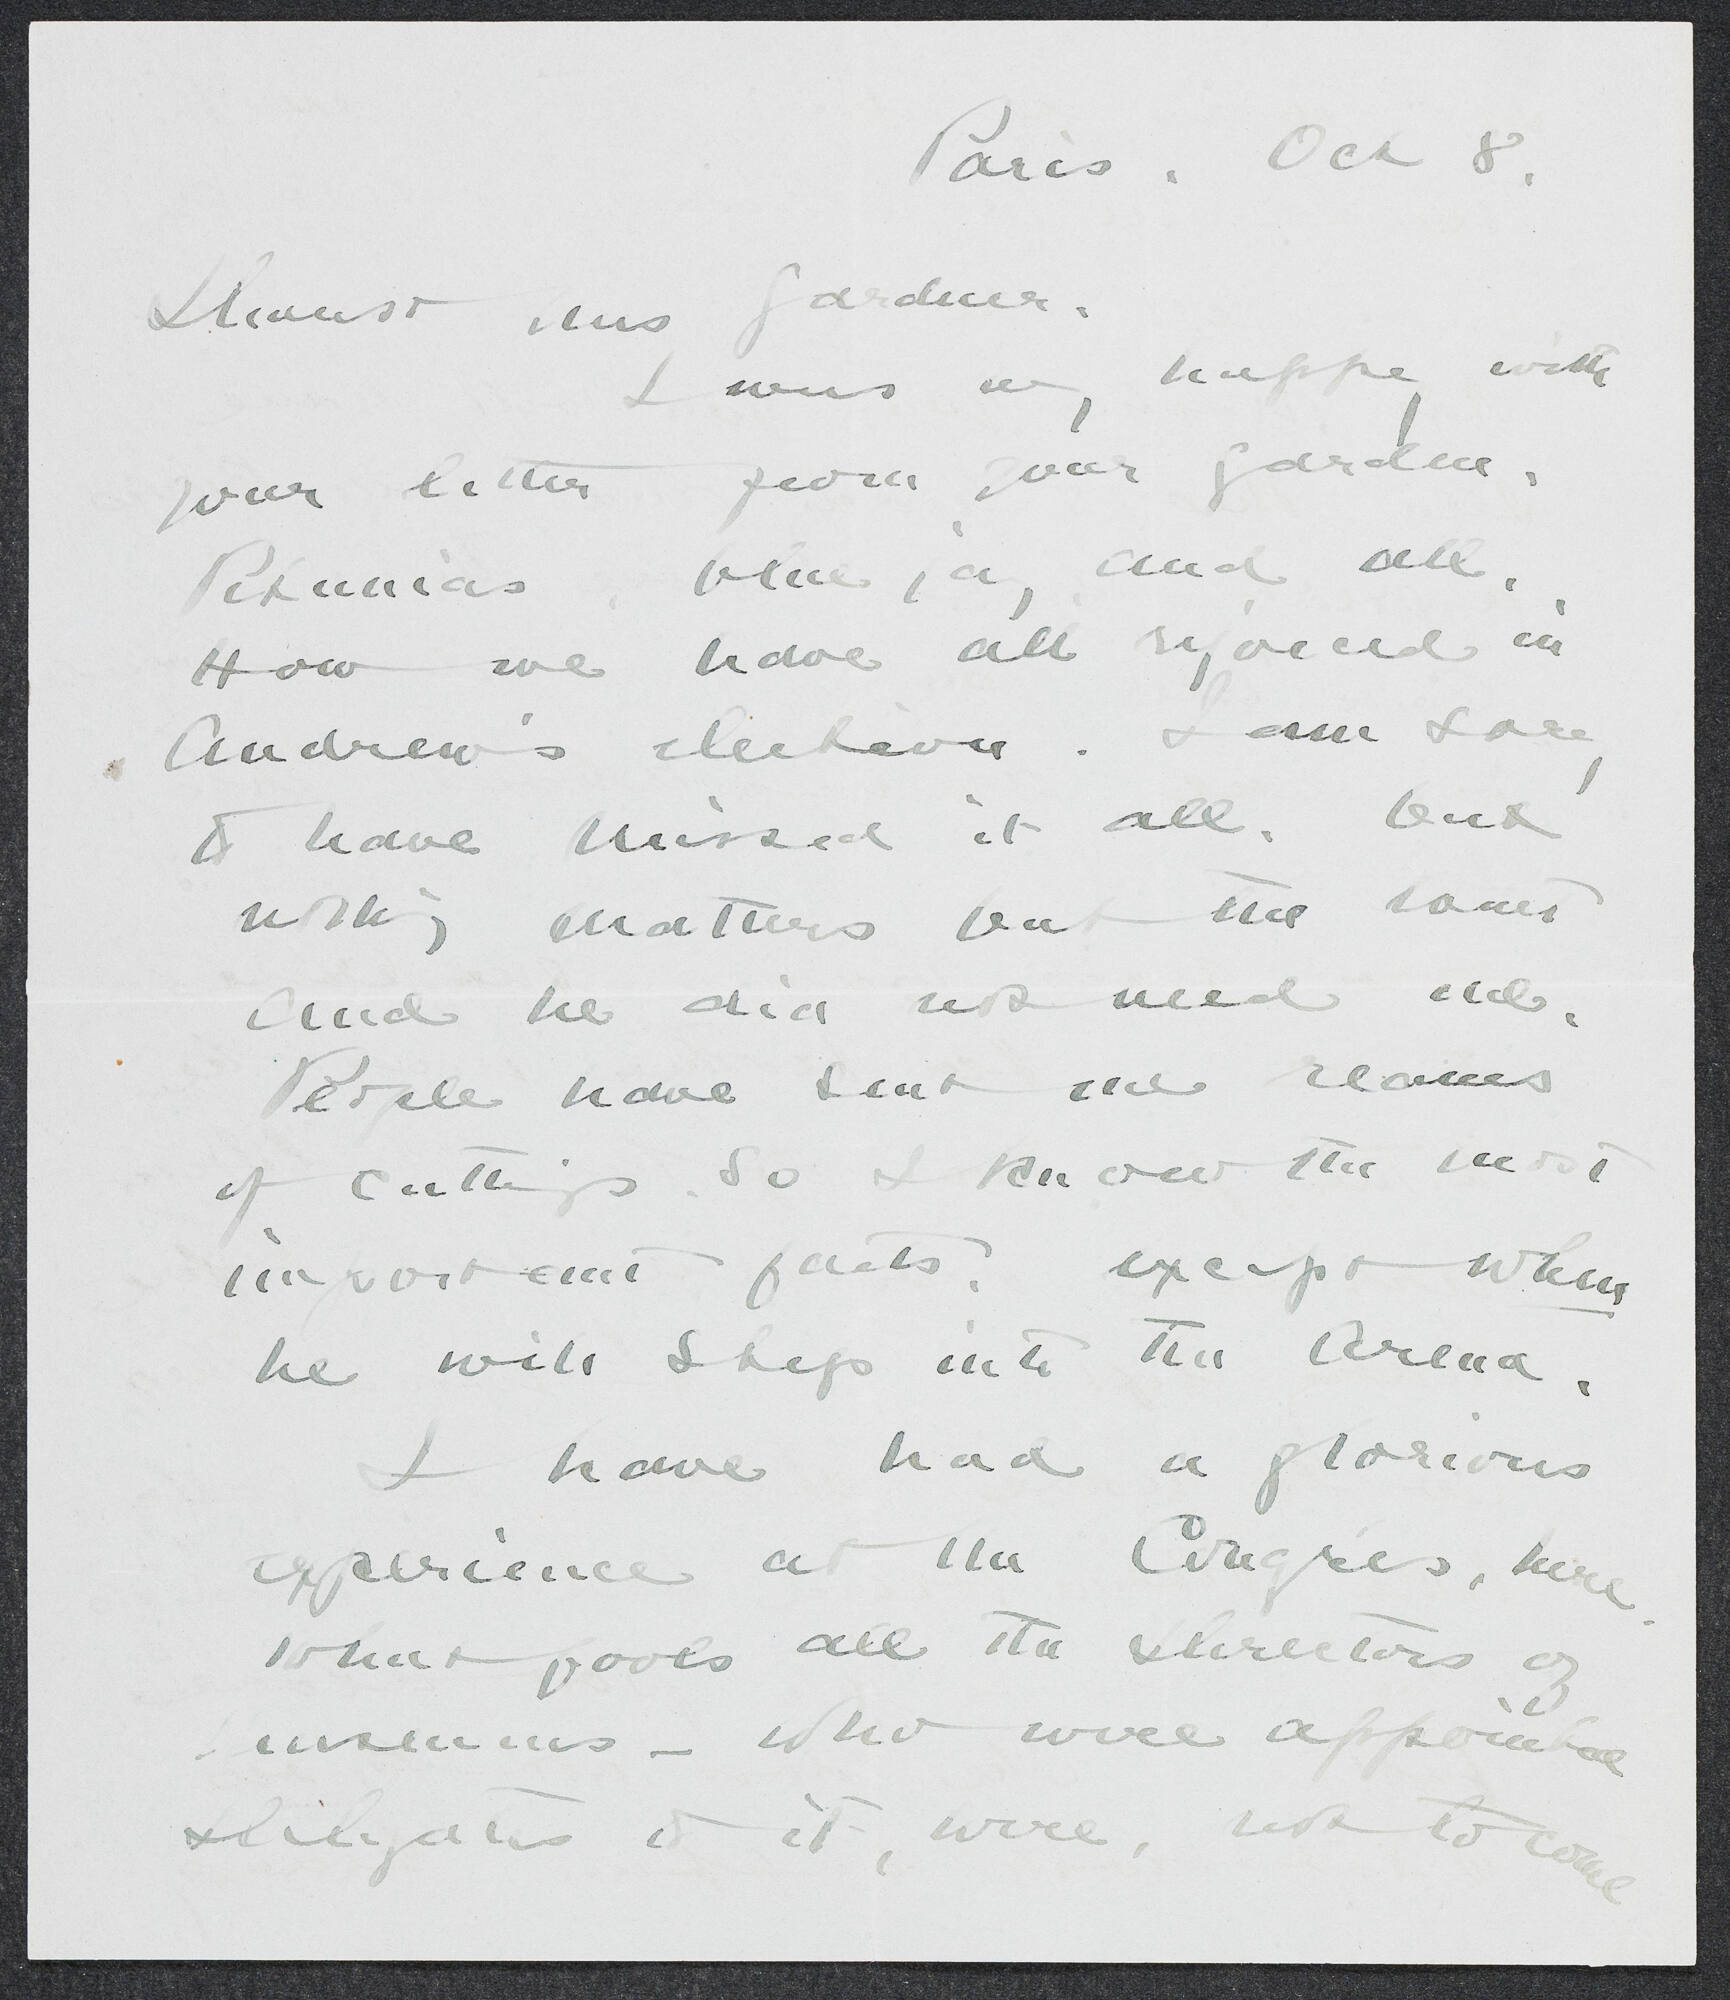 Paris. Oct 8.
Dearest Mrs Gardner.
I was so happy with
your letter from your garden.
Petunias, blue jay and all.
How we have all rejoiced in
Andrew's election. I am sorry
to have missed it all. but
nothing matters but the
and he did not need me.
People have sent me reams
of cuttings. So I know the most
important facts. except when
he will step into the Arena.
I have had a glorious
experience at the Congrès, here.
What fools all the directors of
museums - who were appointed
delegates to it, were, not to come